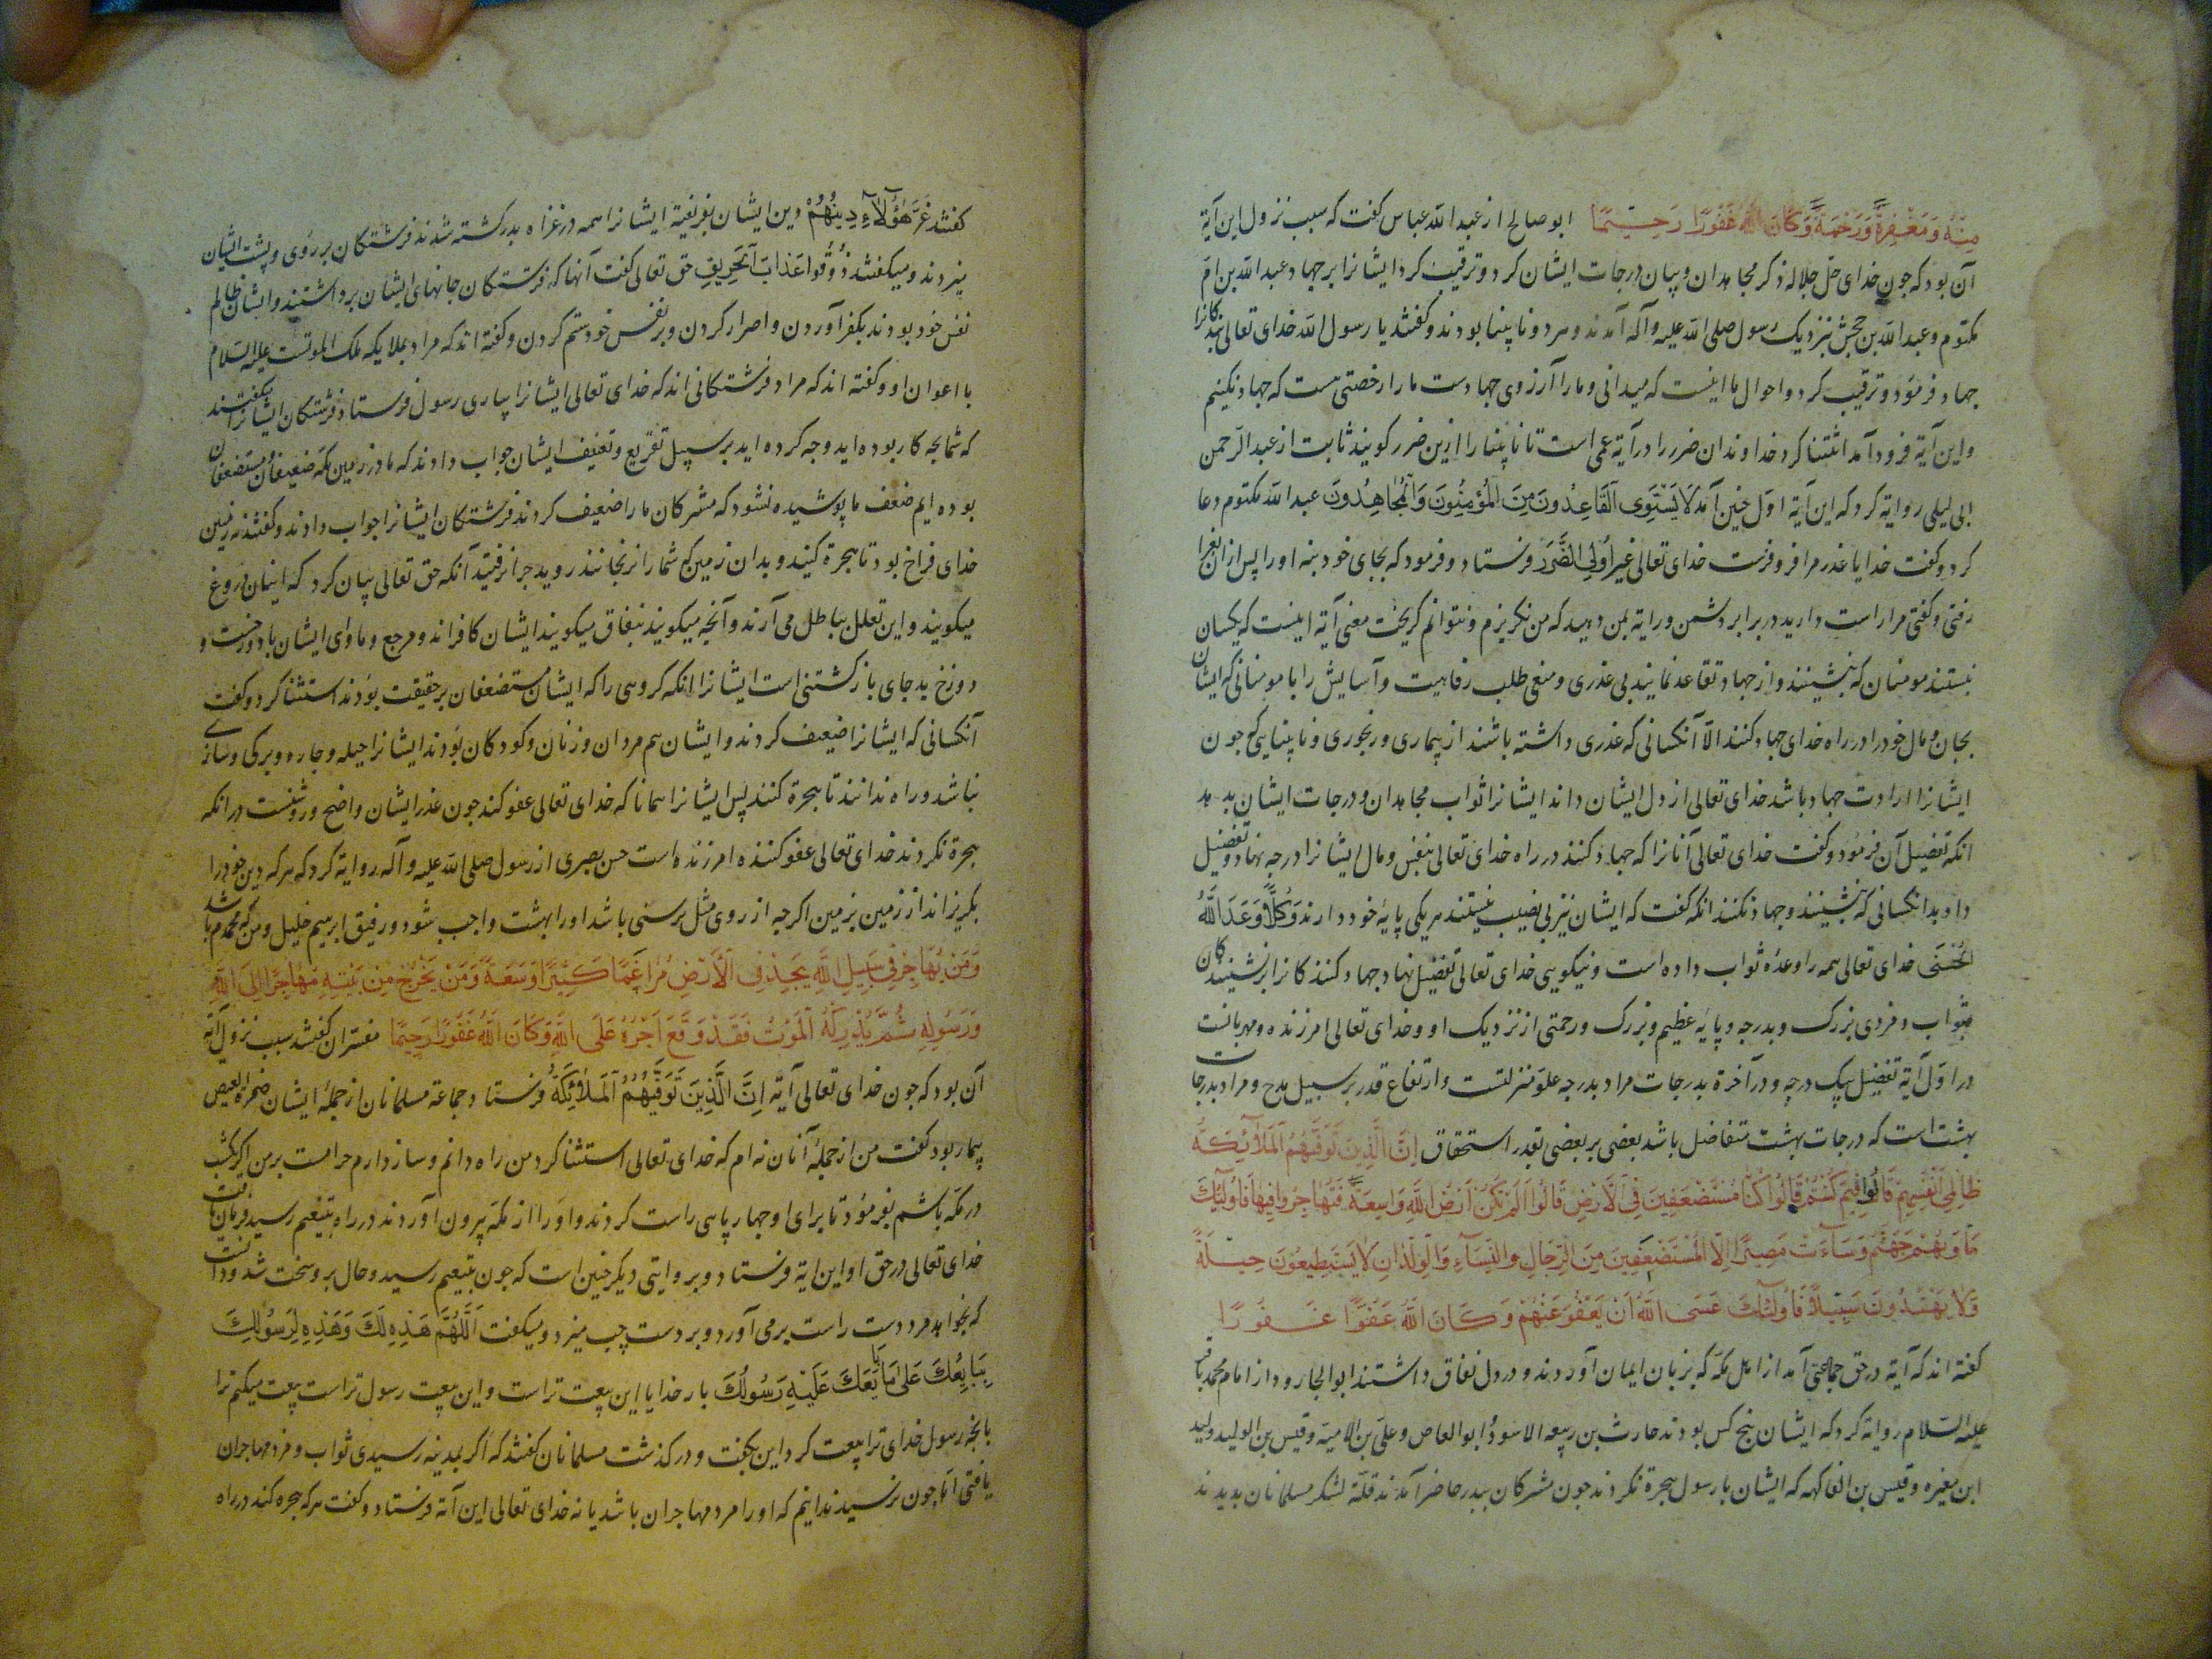 مِنْهُ وَمَغْفِرَةً وَرَحْمَةً وَكَانَ اللَّهُ غَفُورًا رَحِيمًا ابو صالح از عبد الله عباس کفت که سبب نزول این آیة
آن بود که جون خدای جل جلاله ذکر مجاهدان و بیان درجات ایشان کرد و ترقیب کرد ایشانرا بر جهاد عبد الله بن ام
مکتوم و عبد الله بن جحش نزدیک رسول صلی الله علیه و آله آمدند و هر دو نابینا بودند و کفتند یا رسول الله خدای تعالی بندکانرا
جهاد فرمود و ترقیب کرد و احوال ما اینست که میدانی و ما را آرزوی جهادست ما را رخصتی هست که جهاد نکنیم
و این آیة فرود آمد استثنا کرد خداوندان ضرر را در آیة عمی است تا نابینا را ازین ضرر کویند ثابت از عبد الرحمن
ابی لیلی روایة کرد که این آیة اول جنین آمد لَا يَسْتَوِي الْقَاعِدُونَ مِنَ الْمُؤْمِنُونَ وَالْمُجَاهِدُونَ عبد الله مکتوم دعا
کرد و کفت خدایا عذر مرا فرو فرست خدای تعالی غَيْرُ أُولِي الضَّرَرِ فرستاد و فرمود که بجای خود بنه او را پس ازان بغزا
رفتی و کفتی مرا راست دارید در برابر دشمن و رایة بمن دهید که من نکریزم و نتوانم کریخت معنی آیة اینست که یکسان
نیستند مومنان که بنشینند و از جهاد تقاعد نمایند بی عذری و منعی طلب رفاهیت و آسایش را با مومنانی که ایشان
بجان و مال خود را در راه خدای جهاد کنند الا آنکسانی که عذری داشته باشند از بیماری و رنجوری و نابینایی که جون
ایشانرا ارادت جهاد باشد خدای تعالی از دل ایشان داند ایشانرا ثواب مجاهدان و درجات ایشان بدهد
انکه تفضیل آن فرمود و کفت خدای تعالی آنانرا که جهاد کنند در راه خدای تعالی بنفس و مال ایشانرا درجه نهاد و تفضیل
داد بدانکسانی که بنشینند و جهاد نکنند انکه کفت که ایشان نیز بی نصیب نیستند هر یکی پایه خود دارند وَكُلًّا وَعَدَ اللَّهُ
الْحُسْنَى خدای تعالی همه را وعده ثواب داده است و نیکویی خدای تعالی تفضیل نهاد جهاد کنندکانرا بر نشینندکان
بثواب و مزدی بزرک و بدرجه و پایه عظیم و بزرک و رحمتی از نزدیک او و خدای تعالی امرزنده و مهربانست
در اول آیة تفضیل بیک درجه و در آخرة بدرجات مراد بدرجه علو منزلتست و ارتفاع قدر بر سبیل مدح و مراد بدرجات
بهشت است که درجات بهشت متفاضل باشد بعضی بر بعضی بقدر استحقاق إِنَّ الَّذِينَ تَوَفَّيهُمُ الْمَلَائِكَةُ
ظَالِمِي أَنْفُسِهِمْ قَالُوا فِيمَ كُنْتُمْ قَالُوا كُنَّا مُسْتَضْعَفِينَ فِي الْأَرْضِ قَالُوا أَلَمْ تَكُنْ أَرْضُ اللَّهِ وَاسِعَةً فَتُهَاجِرُوا فِيهَا فَأُولَئِكَ
مَأْوَيهُمْ جَهَنَّمُ وَسَاءَتْ مَصِيرًا إِلَّا الْمُسْتَضْعَفِينَ مِنَ الرِّجَالِ وَالنِّسَاءِ وَالْوِلْدَانِ لَا يَسْتَطِيعُونَ حِيلَةً
وَلَا يَهْتَدُونَ سَبِيلًا فَأُولَئِكَ عَسَى اللَّهُ أَنْ يَعْفُوَ عَنْهُمْ وَكَانَ اللَّهُ عَفُوًّا غَفُورًا
کفته اند که آیة در حق جماعتی آمد از اهل مکه که بزبان ایمان آوردند و در دل نفاق داشتند ابو الجارود از امام محمد باقر
علیه السلام روایة کرد که ایشان پنج کس بودند حارث بن ربیعه الاسود ابو العاص و علی بن الامیة و قیس بن الولید ولید
ابن مغیره و قیس بن الفاکهه که ایشان با رسول هجرة نکردند جون مشرکان ببدر حاضر آمدند قلة لشکر مسلمانان بدیدند
کفتند غَرَّ هَؤُلَاءِ دِينُهُمْ دین ایشان بفریفته ایشانرا همه در غزاه بدر کشته شدند فرشتکان بر روی و پشت ایشان
میزدند و میکفتند ذُوقُوا عَذَابَ الْحَرِيقِ حق تعالی کفت آنها که فرشتکان جانهای ایشان برداشتند و ایشان ظالم
نفس خود بودند بکفر آوردن و اصرار کردن و بر نفس خود ستم کردن و کفته اند که مراد بملایکه ملک الموتست علیه السلام
با اعوان او و کفته اند که مراد فرشتکانی اند که خدای تعالی ایشانرا بیاری رسول فرستاد فرشتکان ایشانرا میکفتند
که شما بجه کار بوده اید و جه کرده اید بر سبیل تقریع و تعنیف ایشان جواب دادند که ما در زمین مکه ضعیفان و مستضعفان
بوده ایم ضعف ما پوشیده نشود که مشرکان ما را ضعیف کردند فرشتکان ایشانرا جواب دادند و کفتند نه زمین
خدای فراخ بود تا هجرة کنید و بدان زمین که شما را نرنجانند روید جرا نرفتید آنکه حق تعالی بیان کرد که اینان دروغ
میکویند و این تعلل بباطل می آرند و آنچه میکویند بنفاق میکویند ایشان کافراند و مرجع و ماوای ایشان با دوزخست و
دوزخ بد جای بازکشتنی است ایشانرا الا انکه کروهی را که ایشان مستضعفان بر حقیقت بودند استثنا کرد و کفت
آنکسانی که ایشانرا ضعیف کردند و ایشان هم مردان و زنان و کودکان بودند ایشانرا حیله و جاره و برکی و سازی
نباشد و راه ندانند تا هجرة کنند پس ایشانرا همانا که خدای تعالی عفو کند جون عذر ایشان واضح و روشنست در انکه
هجرة نکردند خدای تعالی عفو کننده امرزنده است حسن بصری از رسول صلی الله علیه و آله روایة کرد که هر که دین خود را
بکریزاند از زمین بزمین اکرجه از روی مثل برسنی باشد او را بهشت واجب شود و رفیق ابرهیم خلیل و من که محمدم باشد
وَمَنْ يُهَاجِرْ فِي سَبِيلِ اللَّهِ يَجِدْ فِي الْأَرْضِ مُرَاغَمًا كَثِيرًا وَسَعَةً وَمَنْ يَخْرُجْ مِنْ بَيْتِهِ مُهَاجِرًا إِلَى اللَّهِ
وَرَسُولِهِ ثُمَّ يُدْرِكْهُ الْمَوْتُ فَقَدْ وَقَعَ أَجْرُهُ عَلَى اللَّهِ وَكَانَ اللَّهُ غَفُورًا رَحِيمًا مفسران کفتند سبب نزول آیة
آن بود که جون خدای تعالی آیة إِنَّ الَّذِينَ تَوَفَّيهُمُ الْمَلَائِكَةُ فرستاد جماعة مسلمانان از جمله ایشان ضمرة العیص
بیمار بود کفت من از جمله آنان نه ام که خدای تعالی استثنا کرد من راه دانم و ساز دارم حرامست بر من اکر یکشب
در مکه باشم بفرمود تا برای او جهارپایی راست کردند و او را از مکه بیرون آوردند در راه بتنعیم رسید فرمان یافت
خدای تعالی در حق او این آیة فرستاد و بروایتی دیکر جنین است که جون بتنعیم رسید و حال برو سخت شد و دانست
که بخواهد مرد دست راست برمی آورد و بر دست جب میزد و میکفت اَللَّهُمَّ هَذِهِ لَكَ وَهَذِهِ لِرَسُولِكَ
يُبَايِعُكَ عَلَى مَا بَايَعَكَ عَلَيْهِ رَسُولُكَ بار خدایا این بیعت تراست و این بیعت رسول تراست بیعت میکنم ترا
بانچه رسول خدای ترا بیعت کرد این بکفت و درکذشت مسلمانان کفتند که اکر بمدینه رسیدی ثواب و مزد مهاجران
یافتی اما جون نرسید ندانیم که او را مزد مهاجران باشد یا نه خدای تعالی این آیة فرستاد و کفت هر که هجره کند در راه